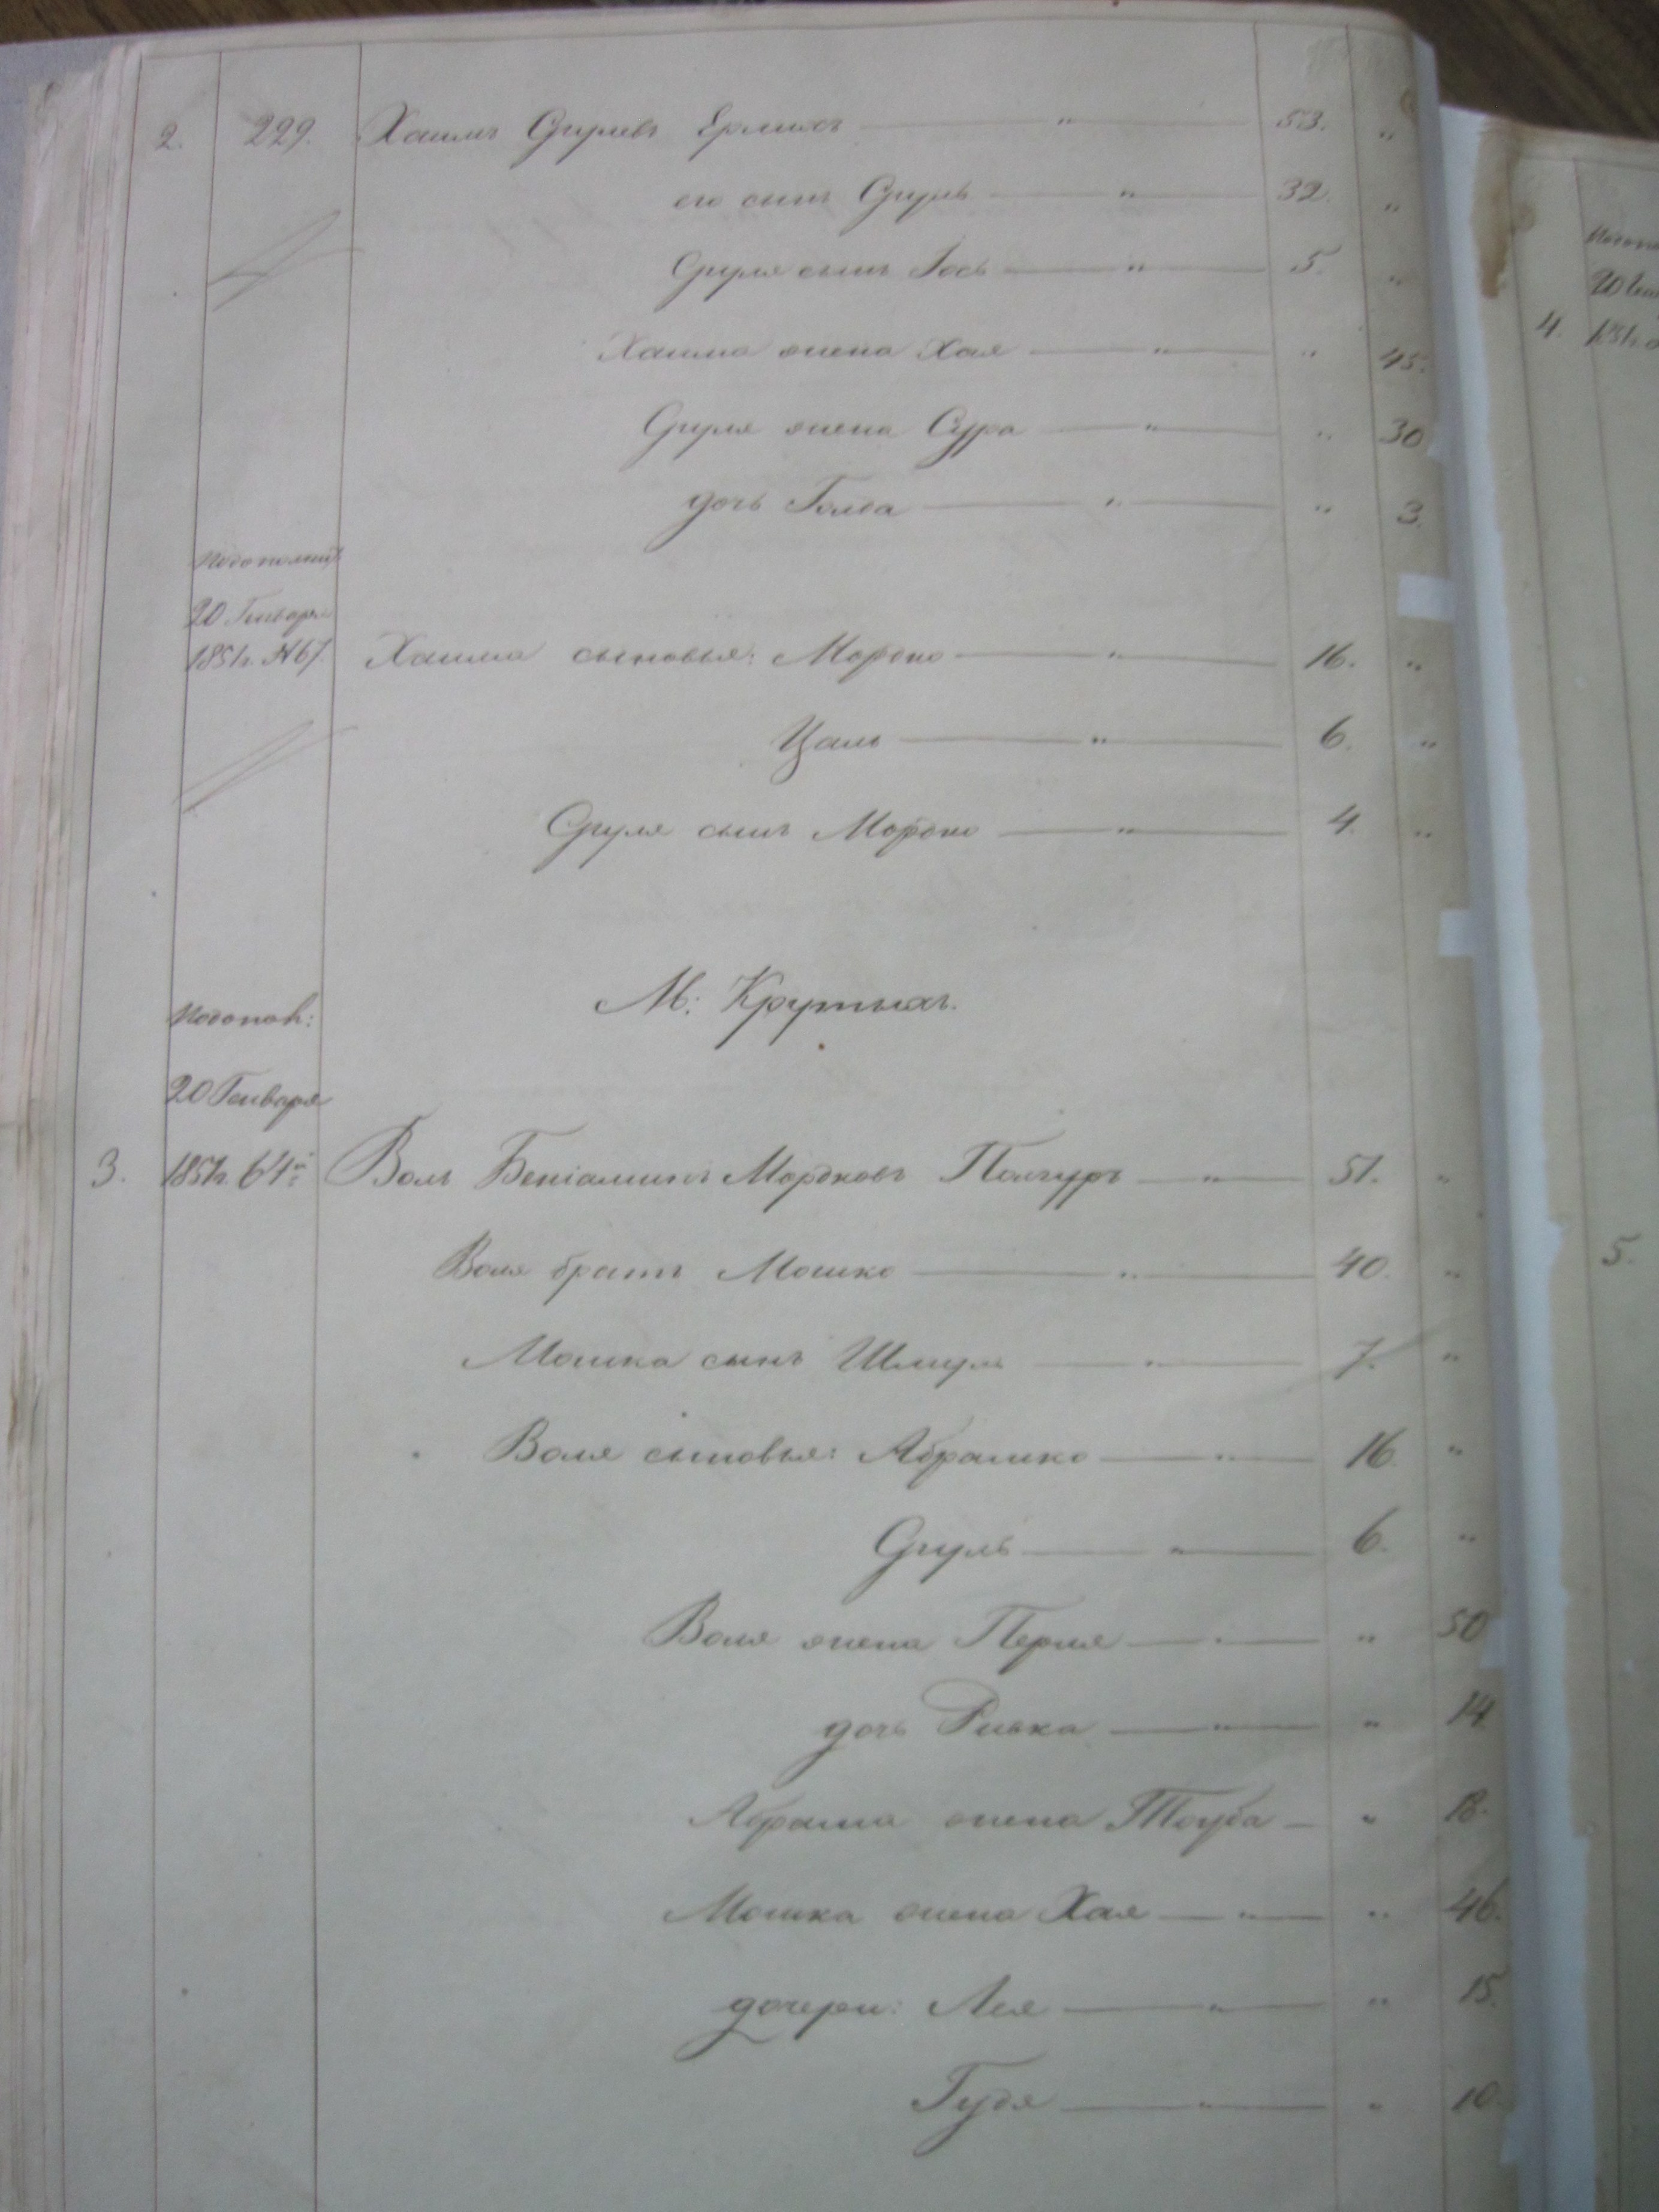 2. 229. Хаимъ Сруневъ Ерлихъ — " — 53. "
его сынъ Сруль — " — 32. "
Сруля сынъ Іось — " — 5. "
Хаима жена Хая — " — " 45.
Сруля жена Сура — " — " 30
дочь Голда — " — " 3.
20 Генваря
1851г. №67. Хаима сыновья: Мордко — " — 16. "
Цаль — " — 6. "
Сруля сынъ Мордко — " — 4. "
М: Крутыхъ.
20 Генваря
3. 1851г. 64й Воль Беніаминъ Мордковъ — " — 51. "
Воля братъ Мошко — " — 40. "
Мошка сынъ Шмуль — " — 7. "
Воля сыновья: Абрамко — " — 16. "
Сруль — " — 6. "
Воля жена Перля — " — " 50
дочь Ривка — " — " 14
Абрама жена Тоуба — " 18.
Мошка жена Хая — " — " 46.
дочери: Лея — " — " 15.
Гудя — " — " 10.
20
4. 1851г.
5.